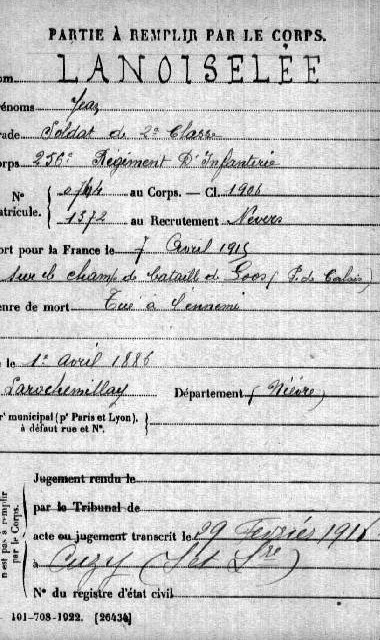 PARTIE À REMPLIR PAR LE CORPS.
om LANOISELÉE
énoms Jean
rade Soldat de 2e Classe
orps 256e Régiment D'Infanterie
N° atricule. au Corps. — Cl. 1906
1372 au Recrutement Nevers
ort pour la France le 7 Avril 1915
sur le champ de bataille de Loos (P. de Calais)
enre de mort Tué à l'ennemi
le 1er avril 1886
Larochemillay Département (Nièvre)
r' municipal (p' Paris et Lyon), à défaut rue et N°.
n'est pas à remplir par le Corps.
Jugement rendu le
par le Tribunal de
acte ou jugement transcrit le 29 Février 1916
à Cuzy (Set Lre)
N° du registre d'état civil
101-708-1922. [26434]